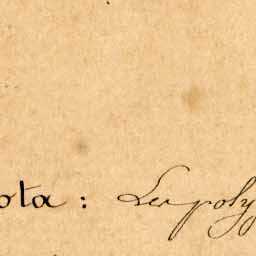 ota : Les poly